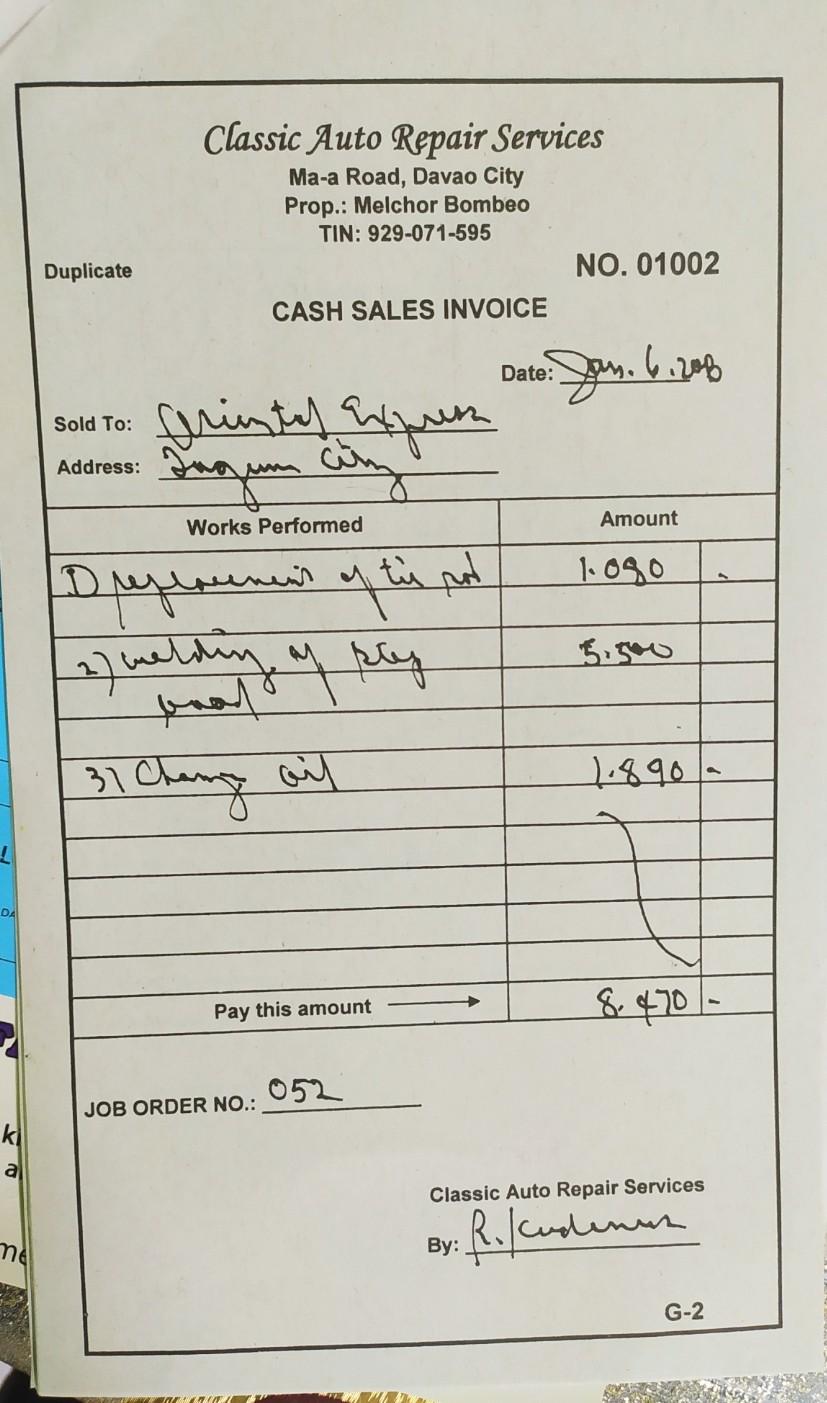 Classic Auto Repair Services
Ma-a Road, Davao City
Prop.: Melchor Bombeo
TIN: 929-071-595
Duplicate NO. 01002
CASH SALES INVOICE
Date: Jan. 6.
Sold To: Oriental Express
Address: Tagum City
Works Performed Amount
1) replacement of tie rod 1.080 -
2) welding of 5.500
3) Change oil 1.890 -
Pay this amount 8.470 -
JOB ORDER NO.: 052
Classic Auto Repair Services
By: R.
G-2